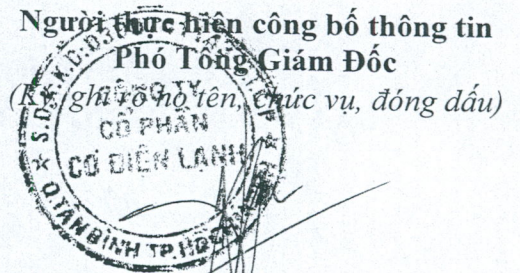 Người thực hiện công bố thông tin
Phó Tổng Giám Đốc
(Ký, ghi rõ họ tên, chức vụ, đóng dấu)
CÔNG TY
CỔ PHẦN
CƠ ĐIỆN LẠNH
Q.TÂN BÌNH TP.HỒ